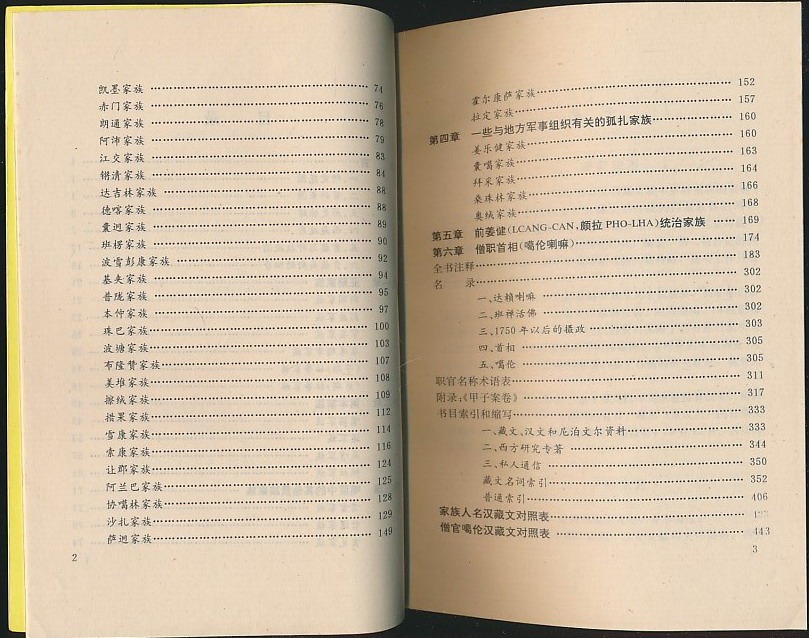 凯墨家族 74
赤门家族 76
朗通家族 78
阿沛家族 79
江交家族 83
锵清家族 84
达吉林家族 88
德喀家族 88
囊迥家族 89
班楞家族 90
波雪彭康家族 92
基夹家族 94
普陇家族 95
本仲家族 97
珠巴家族 100
波塘家族 103
布隆赞家族 107
美堆家族 108
擦绒家族 109
措果家族 112
雪康家族 114
索康家族 116
让耶家族 124
阿兰巴家族 125
协噶林家族 128
沙扎家族 129
萨迥家族 149
2
霍尔康萨家族 152
拉定家族 157
第四章 一些与地方军事组织有关的孤扎家族 160
姜乐健家族 160
囊噶家族 163
拜采家族 164
桑珠林家族 166
奥绒家族 168
第五章 前姜健(LCANG-CAN,颇拉 PHO-LHA)统治家族 169
第六章 僧职首相(噶伦喇嘛) 174
全书注释 183
名 录 302
一、达赖喇嘛 302
二、班禅活佛 302
三、1750 年以后的摄政 303
四、首相 305
五、噶伦 305
职官名称术语表 311
附录:《甲子案卷》 317
书目索引和缩写 333
一、藏文、汉文和尼泊文尔资料 333
二、西方研究专著 344
三、私人通信 350
藏文名词索引 352
普通索引 406
家族人名汉藏文对照表
僧官噶伦汉藏文对照表 443
3